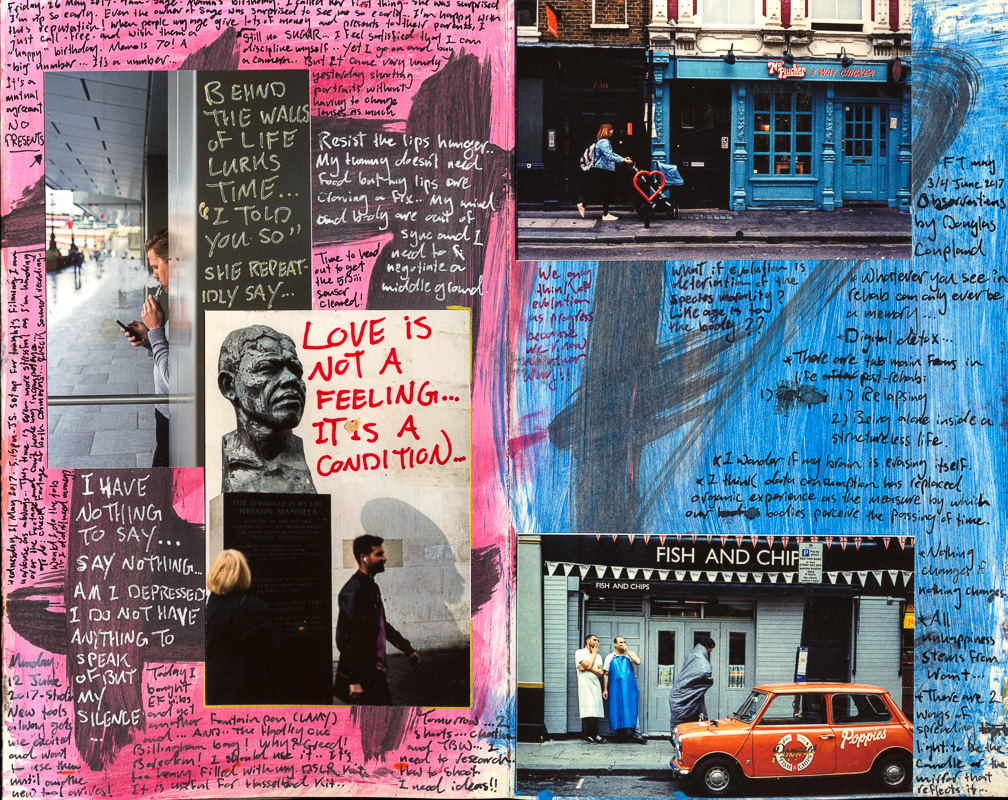 Friday, 26 May 2017 - 9am - Sage - Mama's birthday. I called her first thing - she was surprised
I'm up so early. Even the owner of Sage was surprised to see me so early.. I'm happy with
this reputation. When people younger give lots of money presents to their parents, I
just call - free - and wish them a
"happy" birthday. Mama is 70! A
big number... It's a number...
Still no SUGAR... I feel satisfied that I can
discipline myself... Yet I go on and buy
a camera... But it came very handy
yesterday shooting
portraits without
having to change
lenses as much
It's a
mutual
agreement
NO
PRESENTS
BEHIND
THE WALLS
OF LIFE
LURKS
TIME...
"I TOLD
YOU SO"
SHE REPEAT-
IDLY SAY...
Resist the lips hunger...
My tummy doesn't need
food but my lips are
craving a fix... My mind
and body are out of
sync and I
need to
negotiate a
middle ground.
Time to head
out to get
the
sensor
cleaned!
LOVE IS
NOT A
FEELING...
IT IS A
CONDITION...
THE STRUGGLE IS MY LIFE
NELSON MANDELA
Wednesday 31 May 2017 - 5.15pm - JS. Set up for tonight's filming. I am
I HAVE
NOTHING
TO SAY...
SAY NOTHING...
AM I DEPRESSED
I DO NOT HAVE
ANYTHING TO
SPEAK
OF BUT
MY
SILENCE
Monday
12 June
2017 - Studio
New tools
always gets
me excited
and want
to use them
until another
new tool arrives!
Today I
bought
EF
and yet
another Fountain pen (LAMY)
... AND... the Hadley one
Billingham bag! Why? Greed!
Boredom! I should use it.. it's
too heavy filled with my DSLR kit
It is useful for Hasselblad kit...
Tomorrow... 2
shoots...
and TBW... I
need to research
how to shoot
I need ideas!!
Mother Clucker 3 WAY CHICKEN
FT may
3/4 June 2017
Observations
by Douglas
Coupland
We only
think of
evolution
as progress
because
we know
no other
way!!
What if evolution is
deterioration of the
species morality?
Like age is to
the body??
Whatever you see in
rehab can only ever be
a memory...
Digital detox...
*There are two main in
life post-rehab:
1) 1) Relapsing
2) Being alone inside a
structureless life.
*I wonder if my brain is erasing itself.
*I think data consumption has replaced
organic experience as the measure by which
our bodies perceive the passing of time.
FISH AND CHIPS
FISH AND CHIPS
Poppies
*Nothing
changes if
nothing changes
*All
unhappiness
stems from
want...
*There are 2
ways of
spreading
light: to be the
candle or the
mirror that
reflects it...